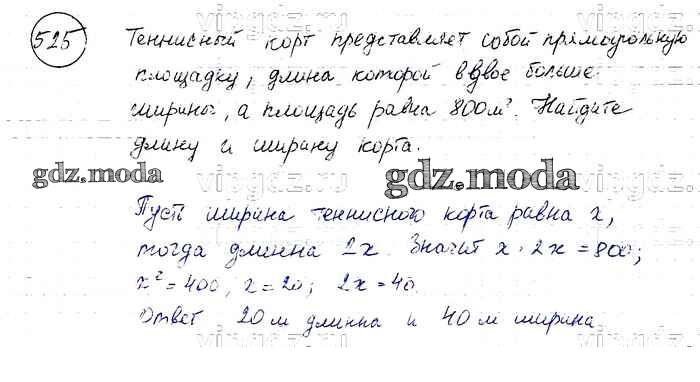 525
Теннисный корт представляет собой прямоугольную
площадку, длина которой вдвое больше
ширины, а площадь равна 800м². Найдите
длину и ширину корта.
gdz.moda
gdz.moda
Пусть ширина теннисного корта равна x,
тогда длинна 2x. Значит x · 2x = 800;
x² = 400, x = 20; 2x = 40.
Ответ 20 м длинна и 40 м ширина